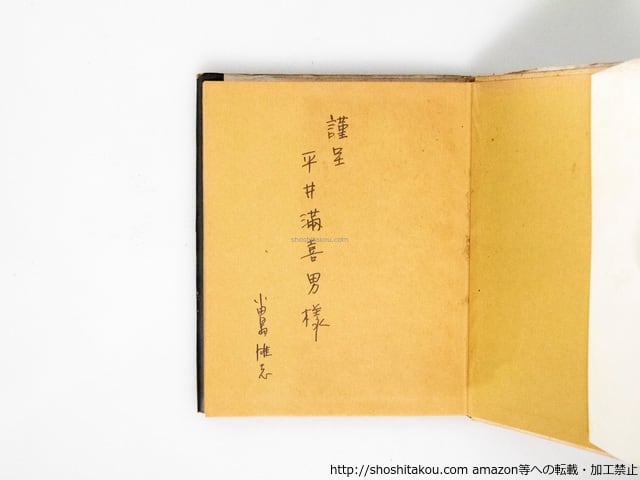 謹呈
平井滿喜男様
小田島雄志
shoshitakou.com
http://shoshitakou.com amazon等への転載・加工禁止